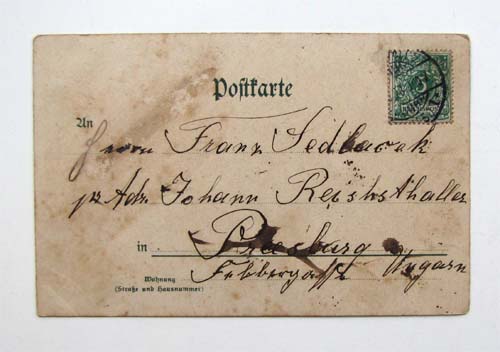 Postkarte
An
Herrn Franz Sedlacek
pr Adr. Johann Reichsthaller
in Presburg
Ungarn
Wohnung
(Straße und Hausnummer)